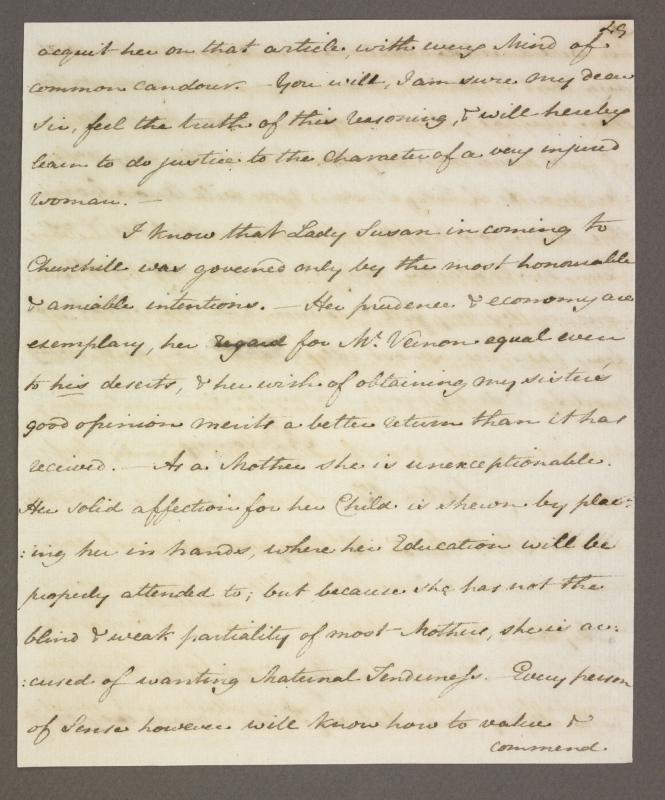 49
acquit her on that article, with every Mind of
common candour. — You will, I am sure my dear
Sir, feel the truth of this reasoning, & will hereby
learn to do justice to the character of a very injured
Woman. —
I know that Lady Susan in coming to
Churchill was governed only by the most honourable
& amiable intentions. — Her prudence & economy are
exemplary, her regard for Mr. Vernon equal even
to his deserts, & her wish of obtaining my sister's
good opinion merits a better return than it has
received. — As a Mother she is unexceptionable.
Her solid affection for her Child is shewn by plac:
:ing her in hands, where her Education will be
properly attended to; but because she has not the
blind & weak partiality of most Mothers, she is ac:
:cused of wanting Maternal Tenderness. — Every person
of Sense however will know how to value &
commend